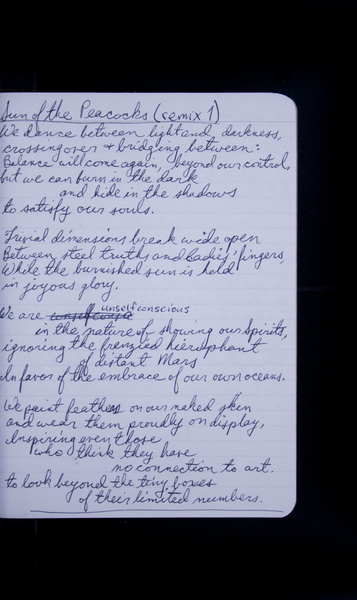 Sun of the Peacocks (remix 1)
We dance between light and darkness,
crossing over + bridging between:
Balance will come again, beyond our control,
but we can burn in the dark
and hide in the shadows
to satisfy our souls.
Trivial dimensions break wide open
Between steel truths and ladies' fingers
While the burnished sun is held
in joyous glory.
We are unselfconscious
in the nature of showing our spirits,
ignoring the frenzied hierophant
of distant Mars
In favor of the embrace of our own oceans.
We paint feathers on our naked skin
and wear them proudly on display,
Inspiring even those
who think they have
no connection to art.
to look beyond the tiny boxes
of their limited numbers.